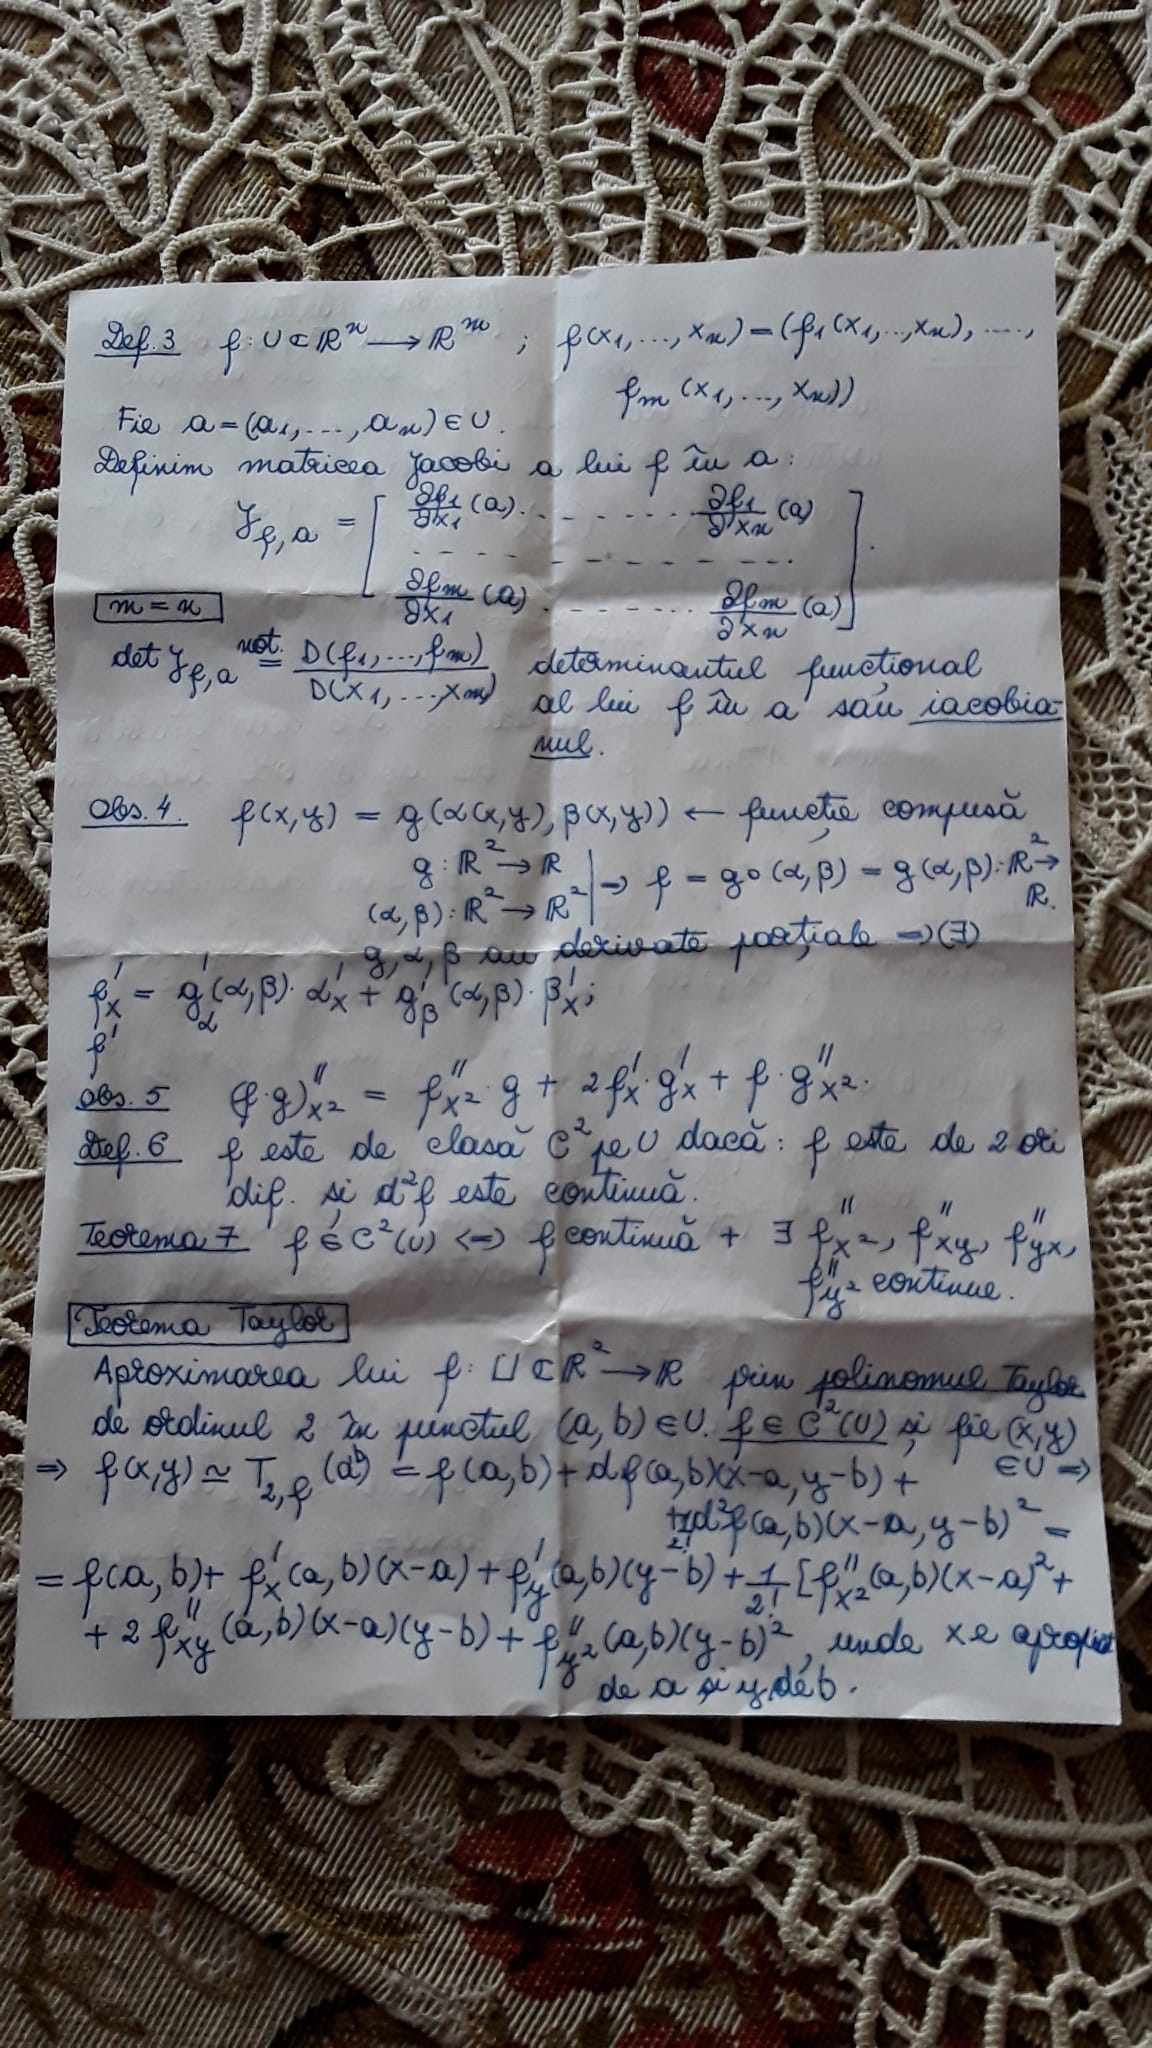 Def. 3 f : U ⊂ ℝⁿ → ℝᵐ ; f(x₁, ..., xₙ) = (f₁(x₁, .., xₙ), ....,
fₘ(x₁, ..., xₙ))
Fie a = (a₁, ..., aₙ) ∈ U.
Definim matricea Jacobi a lui f în a :
J_{f,a} = [ ∂f₁/∂x₁ (a) . . . . . . . . ∂f₁/∂xₙ (a)
- - - - - - - - - - - -
∂fₘ/∂x₁ (a) . . . . . . . . ∂fₘ/∂xₙ (a) ] .
m = n
det J_{f,a} not.= D(f₁, ..., fₘ)/D(x₁, ..., xₘ) determinantul funcțional
al lui f în a sau iacobia-
nul.
Obs. 4 f(x, y) = g(α(x, y), β(x, y)) ← funcție compusă
g : ℝ² → ℝ
(α, β) : ℝ² → ℝ² | ⇒ f = g∘(α, β) = g(α, β) : ℝ² → ℝ.
g, α, β au derivate parțiale ⇒ (∃)
f'ₓ = g'_α(α, β) · α'ₓ + g'_β(α, β) · β'ₓ ;
f'
Obs. 5 (f·g)''_{x²} = f''_{x²} · g + 2f'ₓ · g'ₓ + f · g''_{x²}.
Def. 6 f este de clasă C² pe U dacă : f este de 2 ori
dif. și d²f este continuă.
Teorema 7 f ∈ C²(U) ⇔ f continuă + ∃ f''_{x²}, f''_{xy}, f''_{yx},
f''_{y²} continue.
Teorema Taylor
Aproximarea lui f : U ⊂ ℝ² → ℝ prin polinomul Taylor
de ordinul 2 în punctul (a, b) ∈ U. f ∈ C²(U) și fie (x, y)
∈ U ⇒
⇒ f(x, y) ≃ T_{2,f} (a,b) = f(a, b) + df(a, b)(x-a, y-b) +
+ 1/2! d²f(a, b)(x-a, y-b)² =
= f(a, b) + f'ₓ(a, b)(x-a) + f'_y(a, b)(y-b) + 1/2! [f''_{x²}(a, b)(x-a)² +
+ 2 f''_{xy}(a, b)(x-a)(y-b) + f''_{y²}(a, b)(y-b)², unde x e apropiat
de a și y de b.